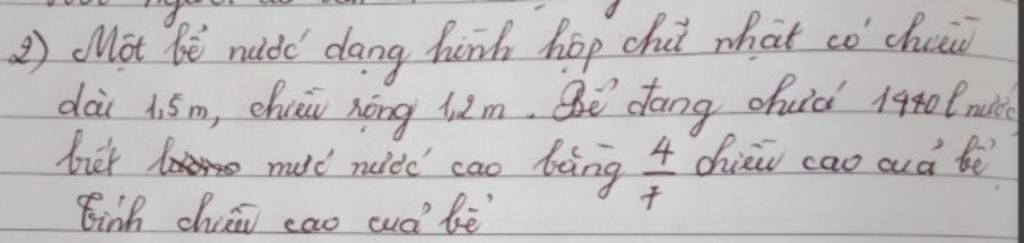 2) Một bể nước dạng hình hộp chữ nhật có chiều
dài 1,5m, chiều rộng 1,2m. Bể đang chứa 1440l nước
biết mực nước cao bằng 4/7 chiều cao của bể.
Tính chiều cao của bể